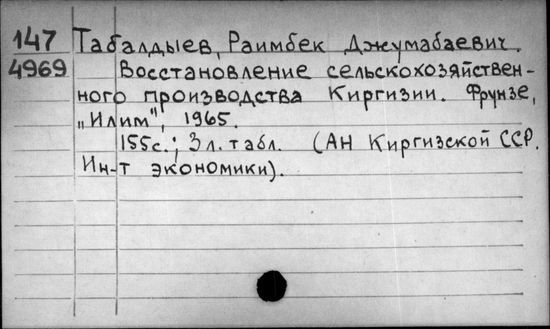 147 Табалдыев, Раимбек Джумабаевич.
4969 Восстановление сельскохозяйствен-
ного производства Киргизии. Фрунзе,
„Илим", 1965.
155с.; 3 л. табл. (АН Киргизской ССР.
Ин-т экономики).